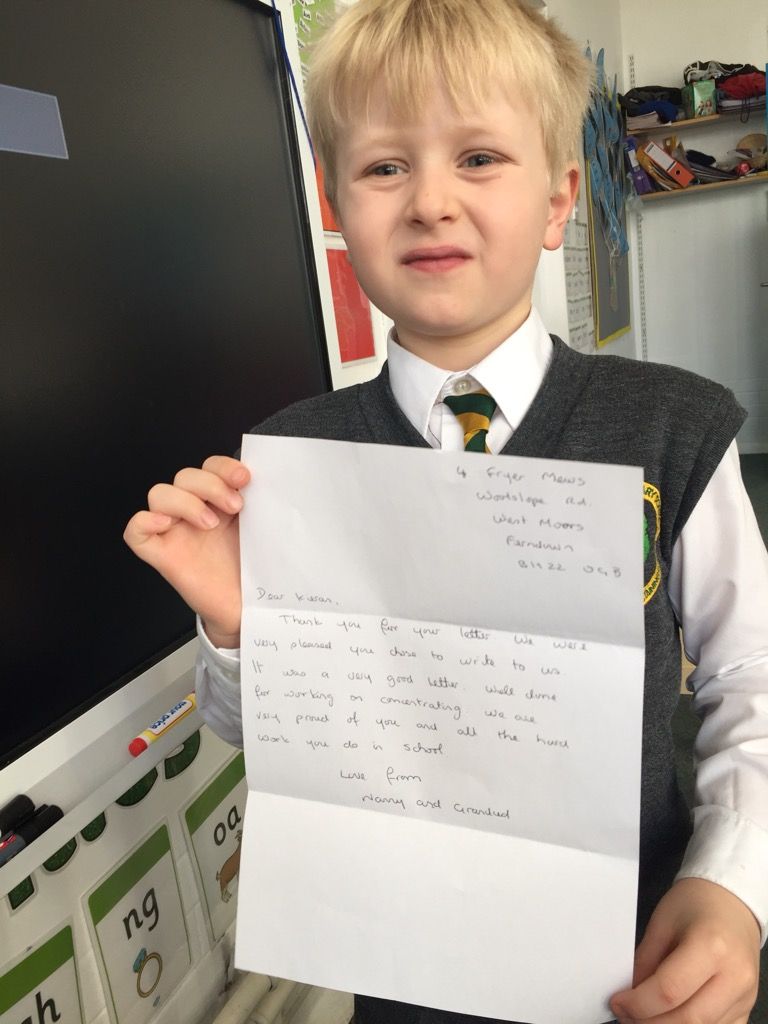 4 Fryer Mews
Woolslope Rd.
West Moors
Ferndown
BH22
Dear Kieran,
Thank you for your letter. We were
very pleased you chose to write to us.
It was a very good letter. Well done
for working on concentrating. We are
very proud of you and all the hard
work you do in school
Love from
Nanny and Grandad
your price
oa
ng